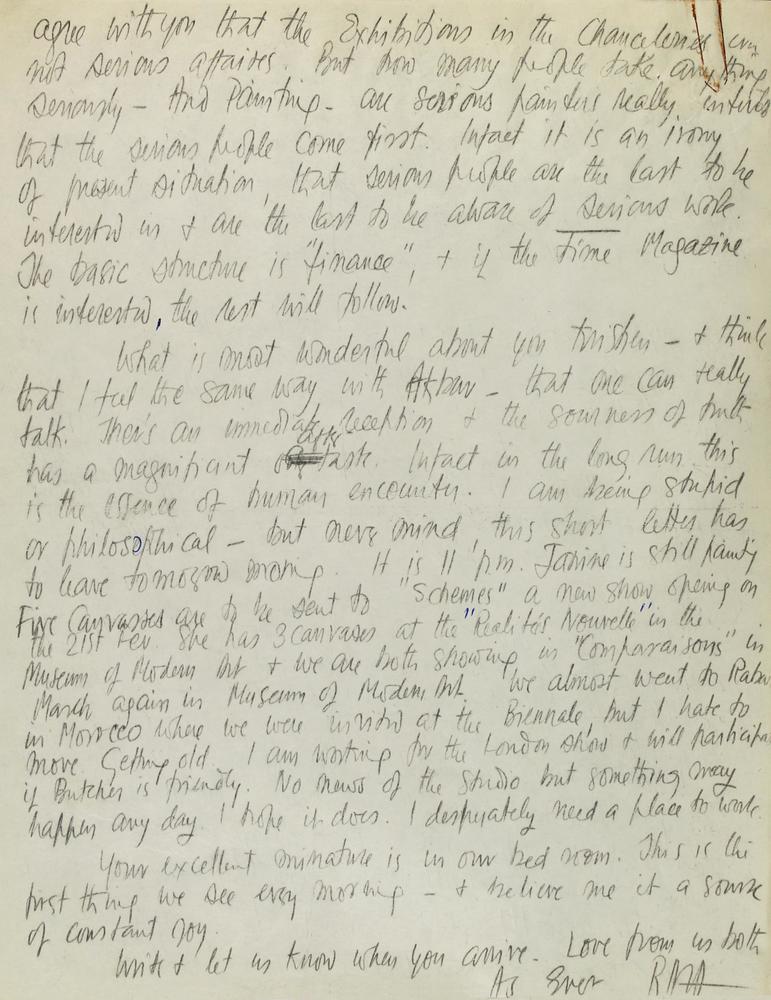 agree with you that the Exhibitions in the Chanceleries are
not serious affaires. But how many people take anything
seriously — And Painting — are serious painters really
that the serious people come first. Infact it is an irony
of present situation, that serious people are the last to be
interested in & are the last to be aware of serious work.
The basic structure is "finance", & if the Time Magazine
is interested, the rest will follow.
What is most wonderful about you — & think
that I feel the same way with Akbar — that one can really
talk. There's an immediate reception & the sourness of truth
has a magnificiant after taste. Infact in the long run this
is the essence of human encounter. I am being stupid
or philosophical — but never mind, this short letter has
to leave tomorow morning. It is 11 pm. Janine is still painting
Five Canvasses are to be sent to "Schemes" a new show opening on
the 21st Fev. She has 3 canvases at the "Realités Nouvelle" in the
Museum of Modern Art & we are both showing in "Comparaisons" in
March again in Museum of Modern Art. We almost went to Rabat
in Morocco where we were invited at the Biennale, but I hate to
move. Getting old. I am working for the London show & will participa
if Butcher is friendly. No news of the Studio but something may
happen any day. I hope it does. I desperately need a place to work.
Your excellent miniature is in our bed room. This is the
first thing we see every morning — & believe me it a source
of constant joy.
Write & let us know when you arrive. Love from us both
As Ever RAZA